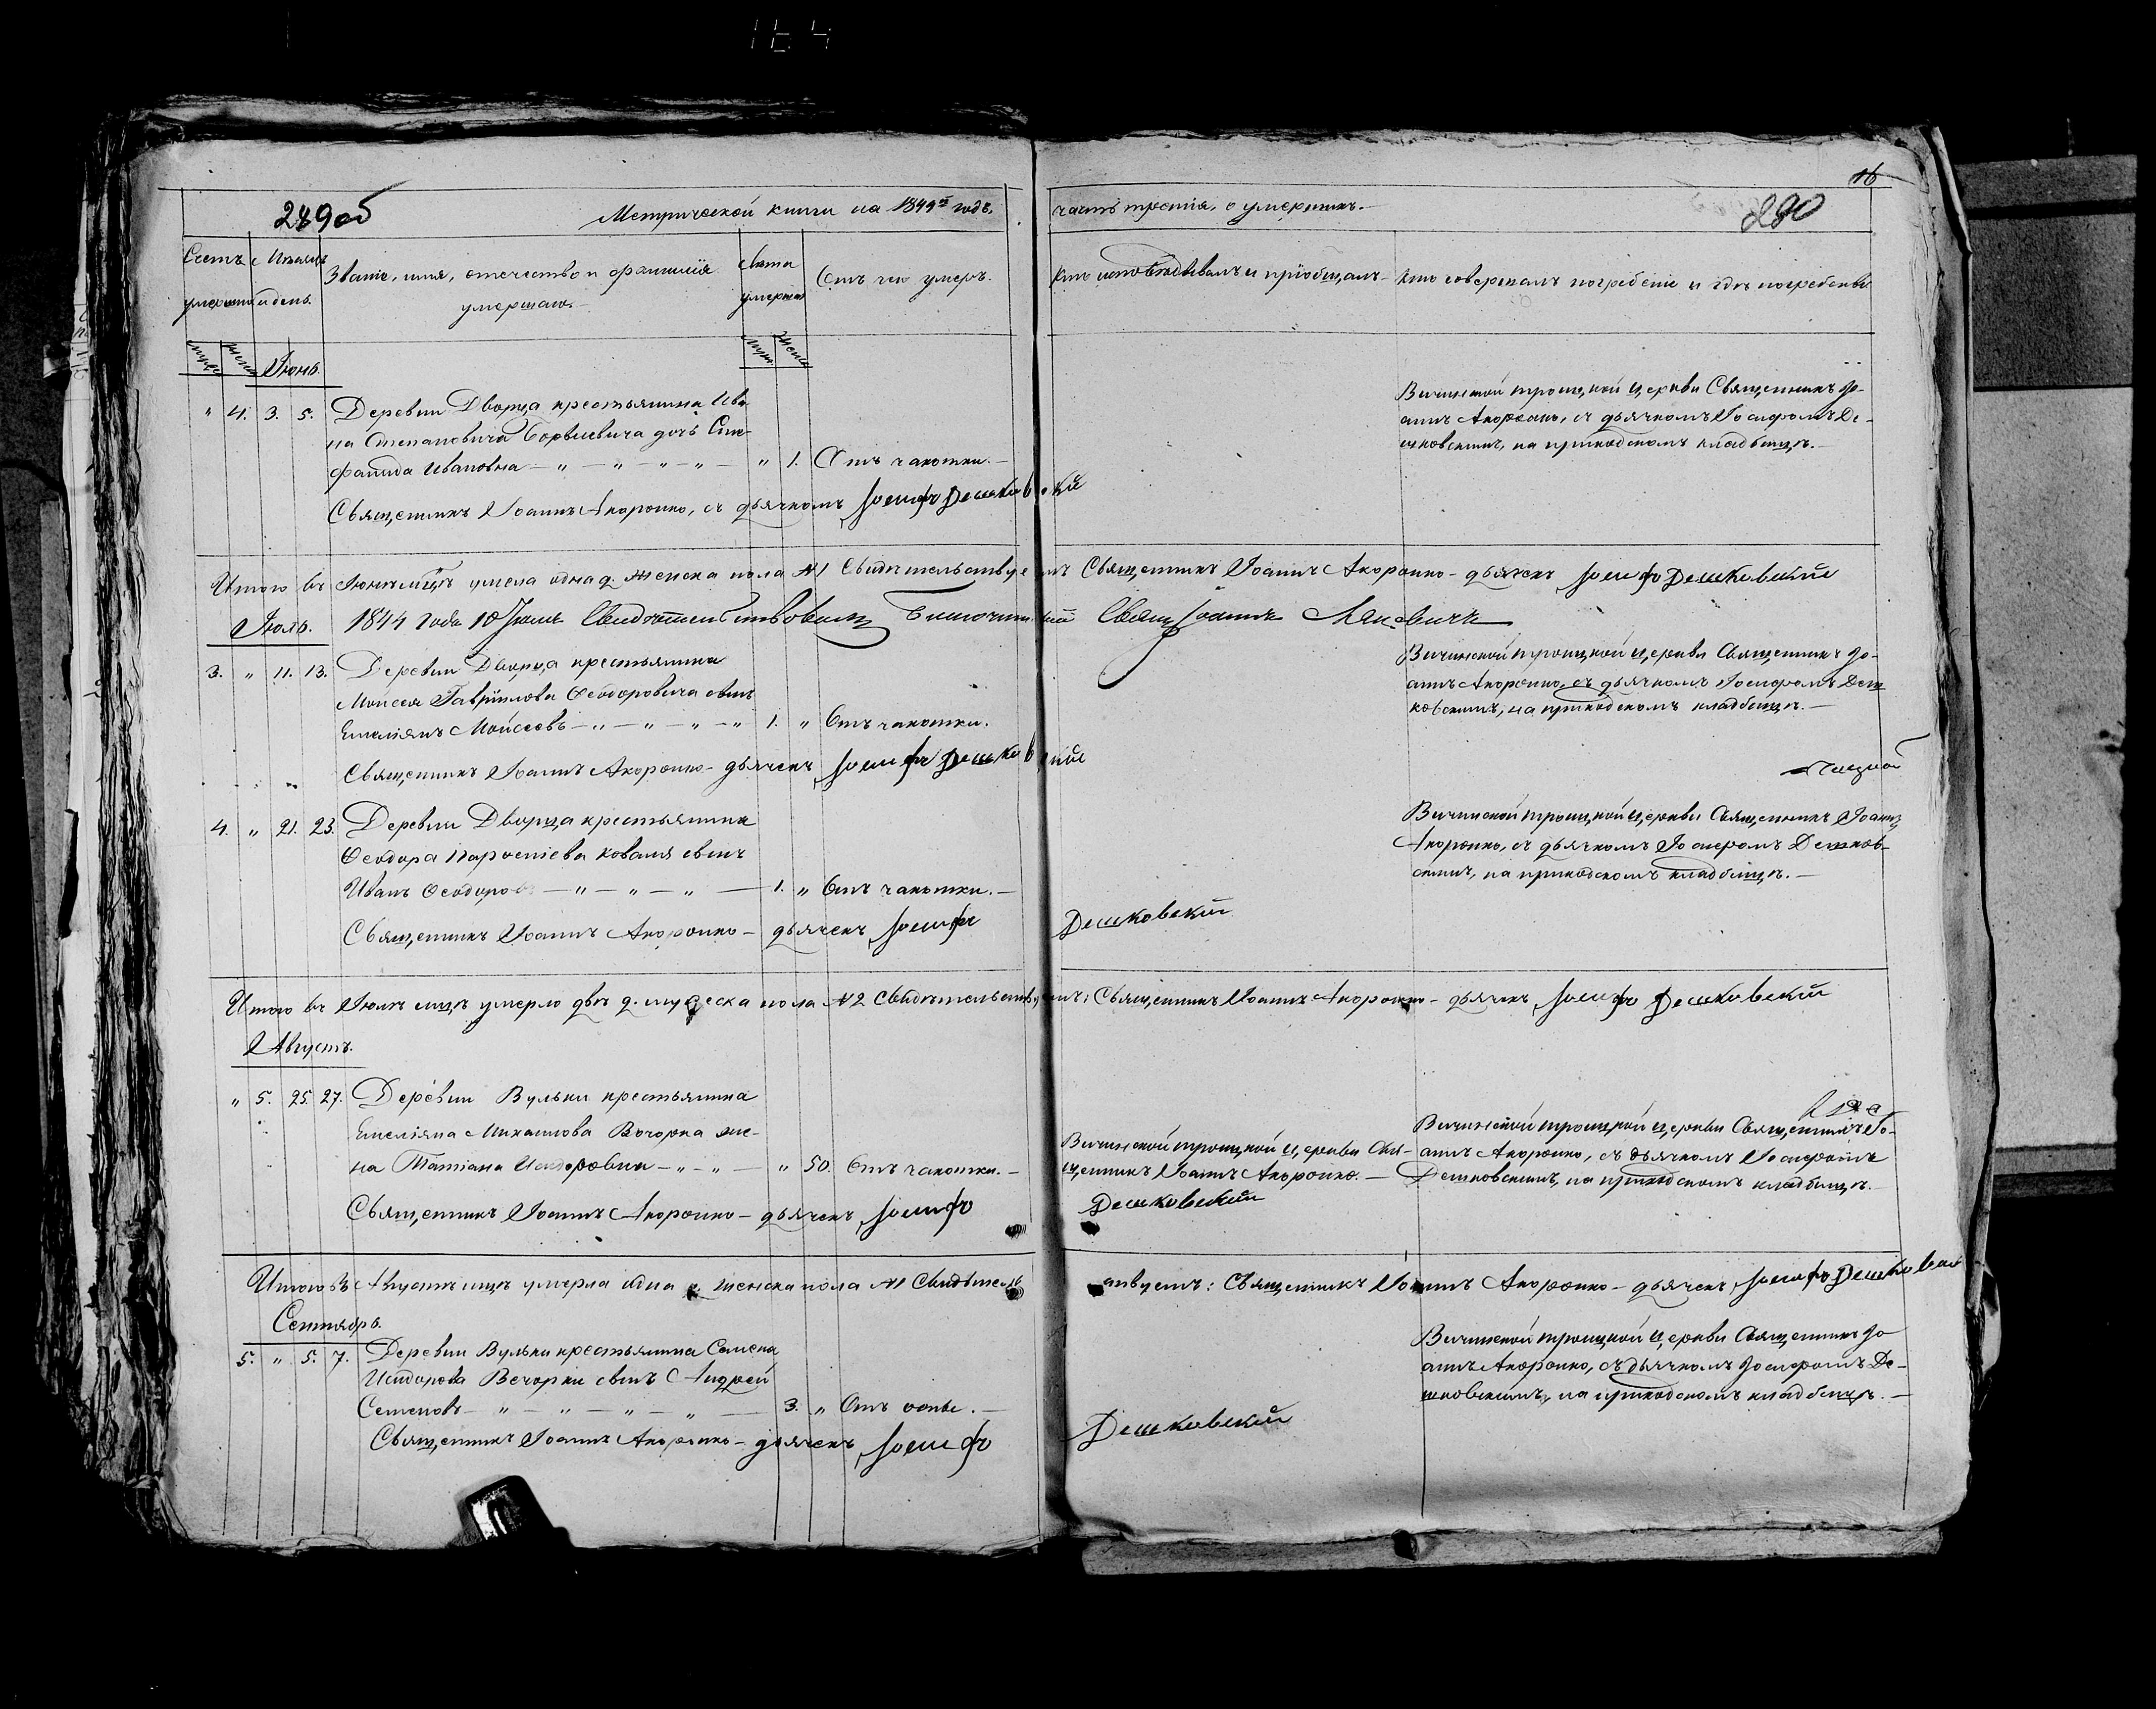 16
289об
Метрической книги на 1844й годъ,
часть третія, о умершихъ.
280
Счетъ умершихъ
Мѣсяцъ и день.
Званіе, имя, отечество и фамилія умершаго.
Лѣта умершаго
Отъ чего умеръ.
Кто исповѣдывалъ и пріобщалъ
Кто совершалъ погребеніе и гдѣ погребены
Іюнь.
" 4. 3. 5. Деревни Дворца крестьянина Ива
на Степановича дочь Сте-
фанида Ивановна — " — " — " — " — " 1. Отъ чахотки.—
Вичинской троицкой церкви Священникъ Іо-
аннъ Акоронко, съ дьячкомъ Іосифомъ Де-
шковскимъ, на приходскомъ кладбищѣ.—
Священникъ Іоаннъ Акоронко, съ дьячкомъ Іосифъ Дешковскій
Итого въ Іюнѣ мцѣ умерла одна д. женска пола №1 Свидѣтельствуетъ Священникъ Іоаннъ Акоронко – дьячекъ Іосифъ Дешковскій
1844 года 10 Іюля Свидѣтельствовалъ Священ Іоаннъ
Іюль.
3. " 11. 13. Деревни Дворца крестьянина
Моисея Гавріилова Ѳеодоровича сынъ
Емеліянъ Моисеевъ — " — " — " — " 1. " Отъ чахотки.
Вичинской троицкой церкви Священникъ Іо-
аннъ Акоронко, съ дьячкомъ Іосифомъ Деш
ковскимъ, на приходскомъ кладбищѣ.—
Священникъ Іоаннъ Акоронко – дьячекъ Іосифъ Дешковскій
4. " 21. 23. Деревни Дворца крестьянина
Ѳеодора Коваля сынъ
Иванъ Ѳеодоровъ — " — " — " — 1. " Отъ чахотки.—
Вичинской троицкой церкви Священникъ Іоаннъ
Акоронко, съ дьячкомъ Іосифомъ Дешков-
скимъ, на приходскомъ кладбищѣ.—
Священникъ Іоаннъ Акоронко – дьячекъ Іосифъ Дешковскій
Итого въ Іюлѣ мцѣ умерло двѣ д. мужеска пола №2 Свидѣтельствуетъ: Священникъ Іоаннъ Акоронко – дьячекъ Іосифъ Дешковскій
Августъ.
" 5. 25. 27. Деревни Вульки крестьянина
Емеліяна Михаилова Вечорка же-
на Татіана Исидоровна — " — " — " 50. Отъ чахотки.—
Вичинской троицкой церкви Свя-
щенникъ Іоаннъ Акоронко.—
Вичинской троицкой церкви Священникъ Іо-
аннъ Акоронко, съ дьячкомъ Іосифомъ
Дешковскимъ, на приходскомъ кладбищѣ.
Священникъ Іоаннъ Акоронко – дьячекъ Іосифъ Дешковскій
Итого въ Августѣ мцѣ умерла одна д. женска пола №1 Свидѣтельствуетъ: Священникъ Іоаннъ Акоронко – дьячекъ Іосифъ Дешковскій
Сентябрь.
5. " 5. 7. Деревни Вульки крестьянина Семена
Исидорова Вечорки сынъ Андрей
Семеновъ — " — " — " — " — 3. " Отъ оспы.—
Вичинской троицкой церкви Священникъ Іо
аннъ Акоронко, съ дьячкомъ Іосифомъ Де-
шковскимъ, на приходскомъ кладбищѣ.—
Священникъ Іоаннъ Акоронко – дьячекъ Іосифъ Дешковскій